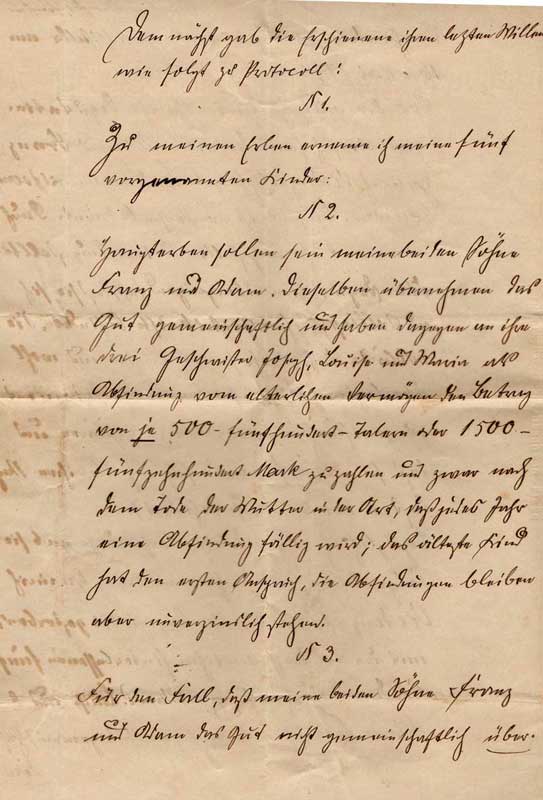 Dem nächst gab die Erschienene ihren letzten Willen
wie folgt zu Protocoll:
N 1.
Zu meinen Erben ernenne ich meine fünf
vorgenannten Kinder:
N 2.
Haupterben sollen sein meine beiden Söhne
Franz und Adam. Dieselben übernehmen das
Gut gemeinschaftlich und haben dagegen an ihre
drei Geschwister Joseph, Louise und Maria als
Abfindung vom elterlichen Vermögen den Betrag
von je 500 - fünfhundert - Talern oder 1500 -
fünfzehnhundert Mark zu zahlen und zwar nach
dem Tode der Mutter in der Art, daß jedes Jahr
eine Abfindung fällig wird; das älteste Kind
hat den ersten Anspruch, die Abfindungen bleiben
aber unverzinslich stehen.
N 3.
Für den Fall, daß meine beiden Söhne Franz
und Adam das Gut nicht gemeinschaftlich über-